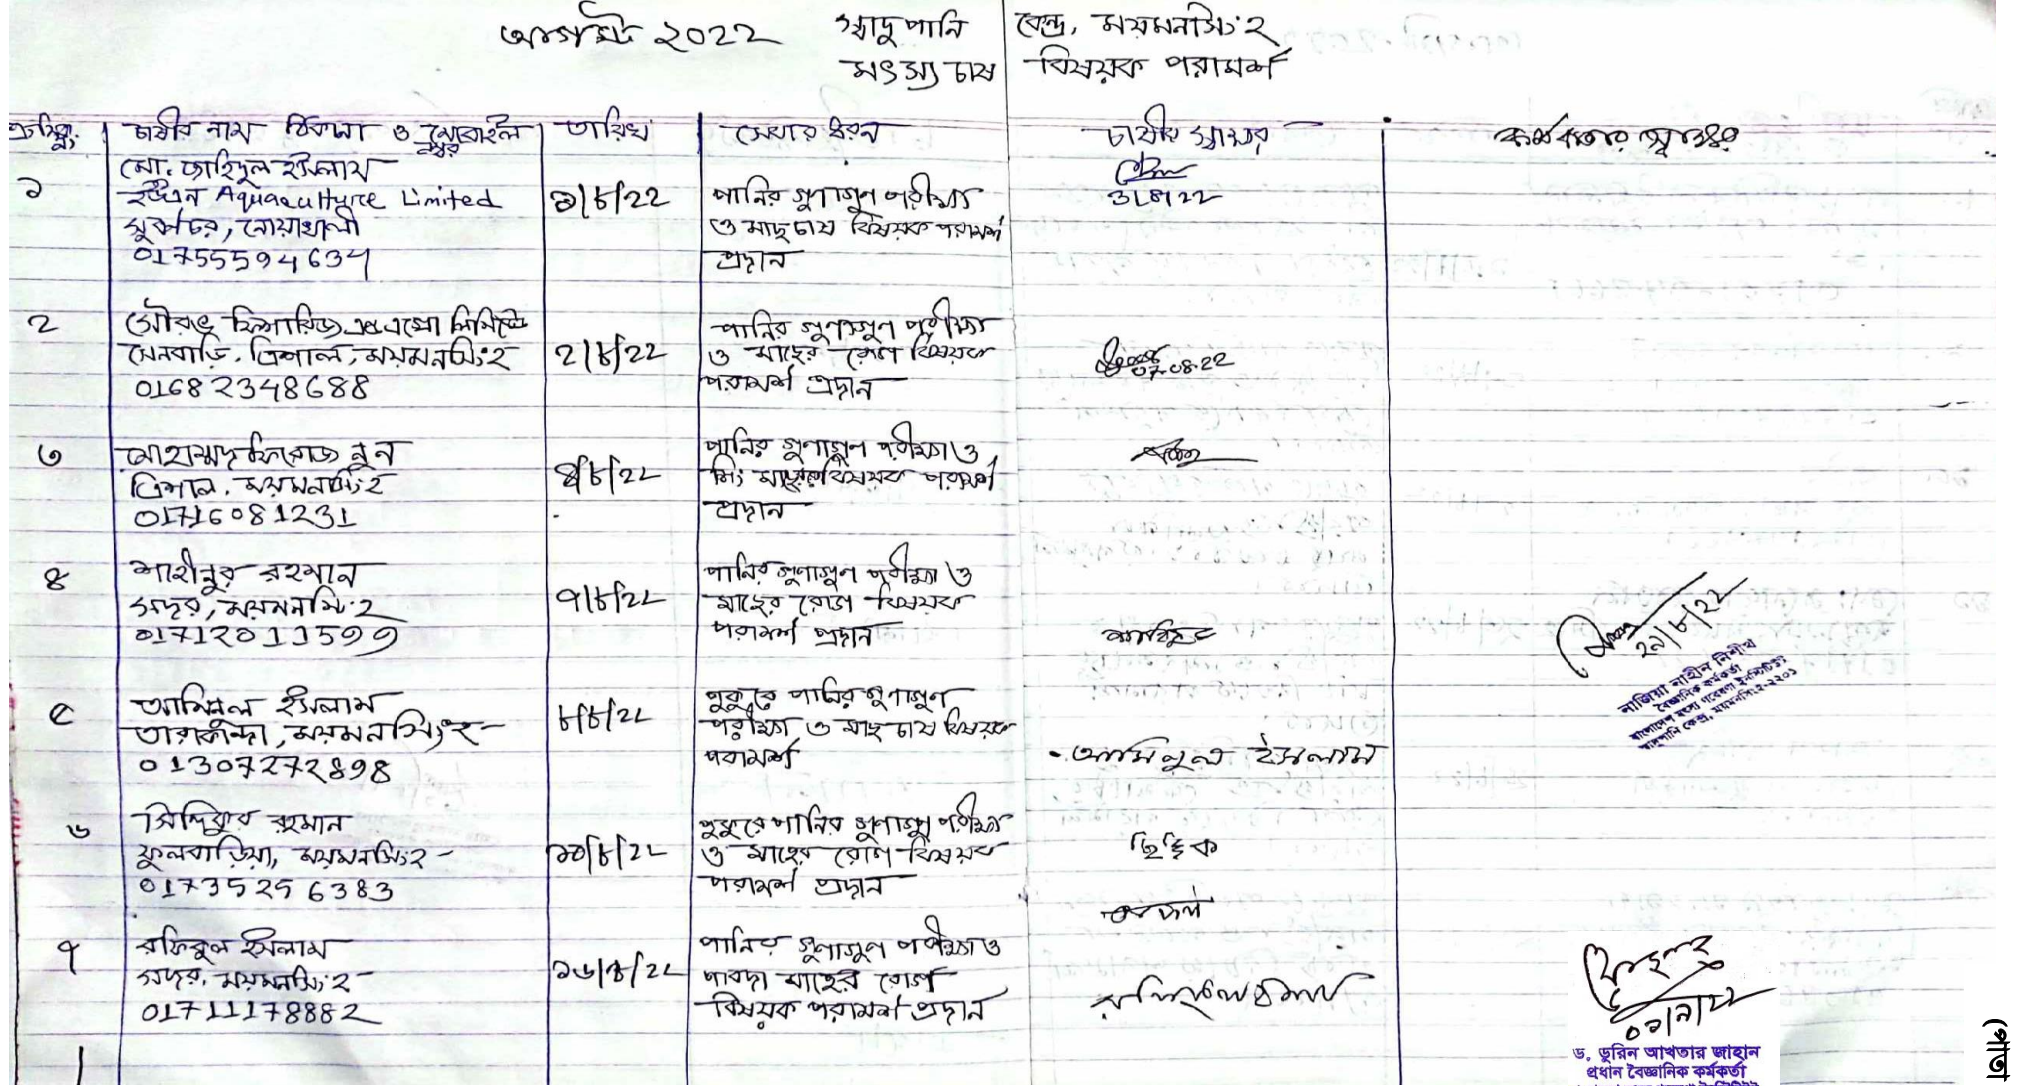 আগস্ট ২০২২
স্বাদুপানি কেন্দ্র, ময়মনসিংহ
মৎস্য চাষ বিষয়ক পরামর্শ
ক্রমিক নং চাষীর নাম ঠিকানা ও মোবাইল নম্বর তারিখ সেবার ধরন চাষীর স্বাক্ষর কর্মকর্তার স্বাক্ষর
১
মো. জাহিদুল ইসলাম
Aquaculture Limited
সুবর্ণচর, নোয়াখালী
01755594634
৩/৮/২২
পানির গুণাগুণ পরীক্ষা
ও মাছ চাষ বিষয়ক পরামর্শ
প্রদান
3/8/22
২
লিমিটেড
সেনবাড়ি, ত্রিশাল, ময়মনসিংহ
01682348688
২/৮/২২
পানির গুণাগুণ পরীক্ষা
ও মাছের রোগ বিষয়ক
পরামর্শ প্রদান
07.08.22
৩
মোহাম্মদ ফিরোজ নুন
ত্রিশাল, ময়মনসিংহ
01716081231
৪/৮/২২
পানির গুণাগুণ পরীক্ষা ও
শিং মাছের বিষয়ক পরামর্শ
প্রদান
৪
শাহীনুর রহমান
সদর, ময়মনসিংহ
01712011599
৭/৮/২২
পানির গুণাগুণ পরীক্ষা ও
মাছের রোগ বিষয়ক
পরামর্শ প্রদান
২৯/৮/২২
নাজিয়া নাহীন নিশীথ
বৈজ্ঞানিক কর্মকর্তা
বাংলাদেশ মৎস্য গবেষণা ইনস্টিটিউট
স্বাদুপানি কেন্দ্র, ময়মনসিংহ-২২০১
৫
আমিনুল ইসলাম
তারাকান্দা, ময়মনসিংহ
01307272898
৮/৮/২২
পুকুরে পানির গুণাগুণ
পরীক্ষা ও মাছ চাষ বিষয়ক
পরামর্শ
আমিনুল ইসলাম
৬
সিদ্দিকুর রহমান
ফুলবাড়িয়া, ময়মনসিংহ
01735256383
১০/৮/২২
পুকুরে পানির গুণাগুণ পরীক্ষা
ও মাছের রোগ বিষয়ক
পরামর্শ প্রদান
ছিদ্দিক
৭
রফিকুল ইসলাম
সদর, ময়মনসিংহ
01711178882
১৬/৮/২২
পানির গুণাগুণ পরীক্ষা ও
পাবদা মাছের রোগ
বিষয়ক পরামর্শ প্রদান
ড. ডুরিন আখতার জাহান
প্রধান বৈজ্ঞানিক কর্মকর্তা